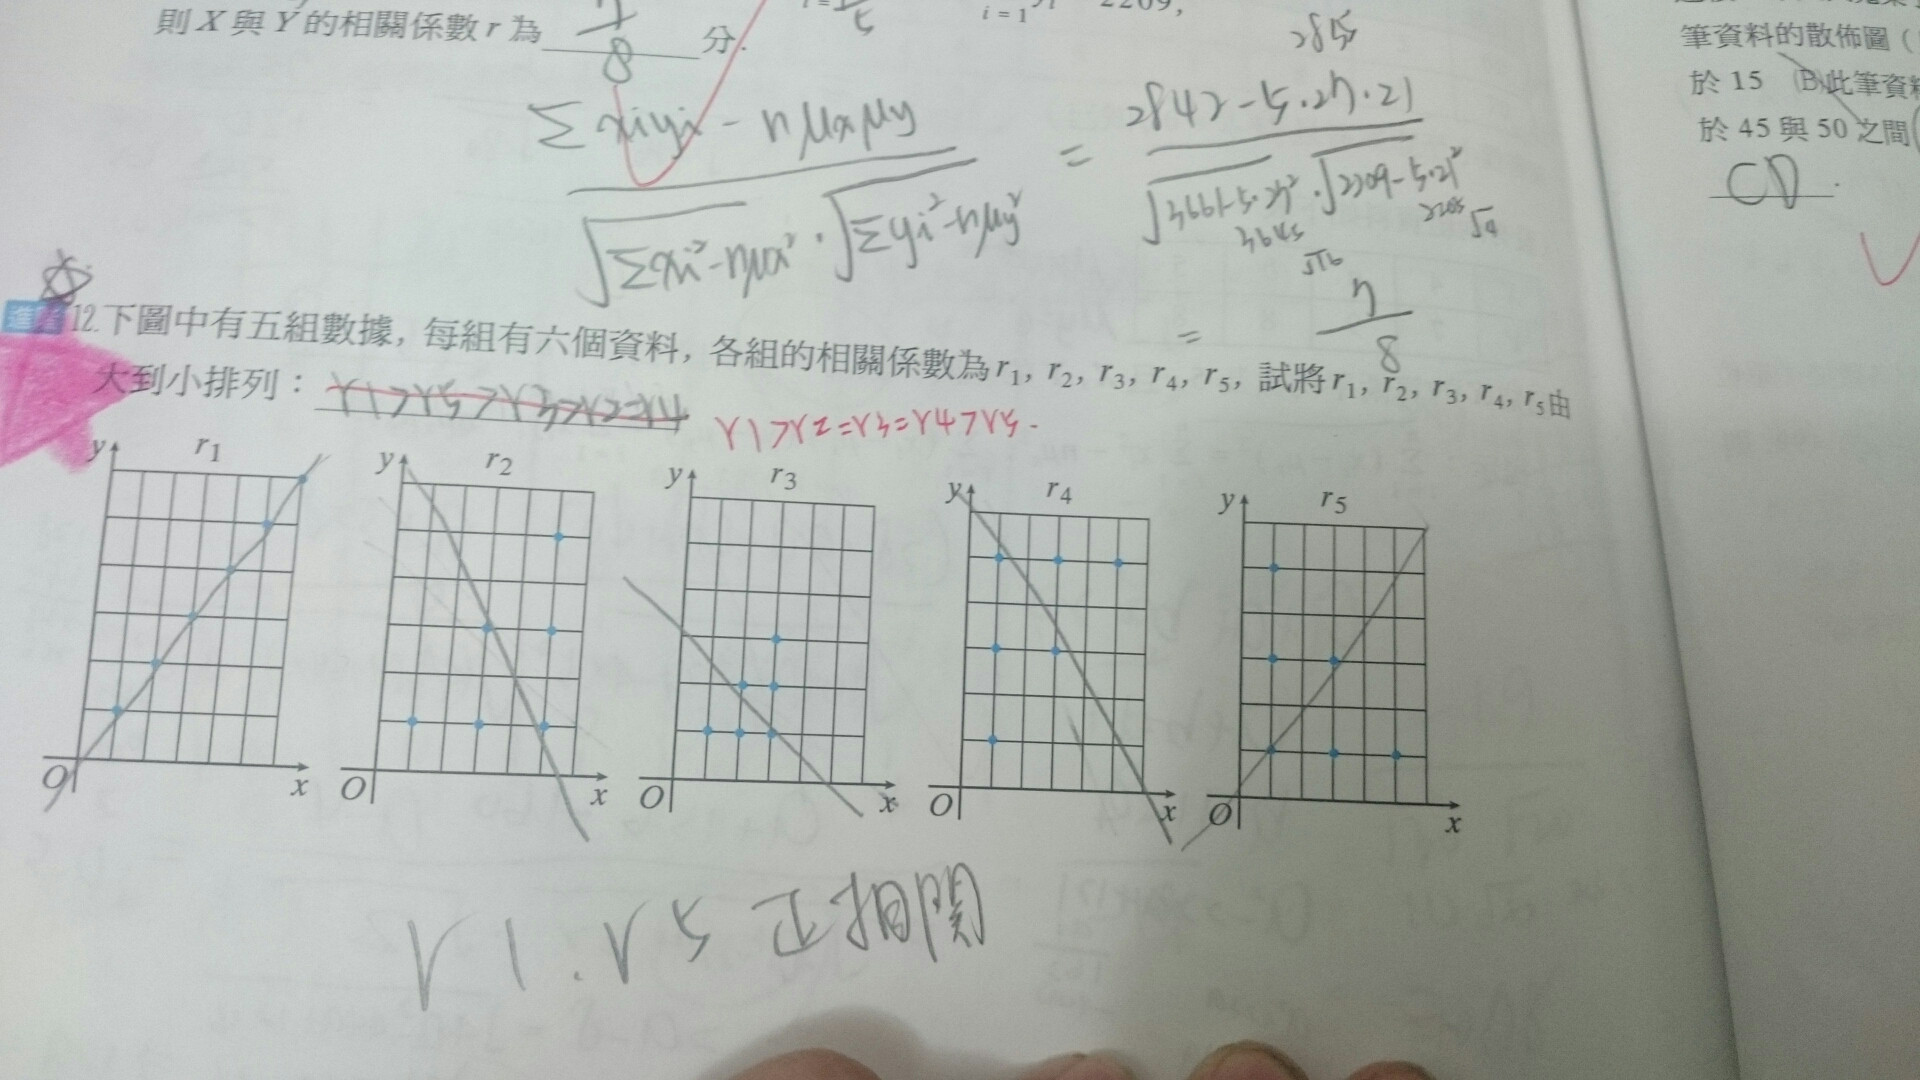 則 X 與 Y 的相關係數 r 為 7/8 分.
2209,
i = 1
5
2845
Σxiyi - nμxμy / √Σxi²-nμx² · √Σyi²-nμy² = 2842-5·27·21 / √3661-5·27² · √2209-5·21²
3645
2205
√16
√4
= 7/8
進
12.下圖中有五組數據, 每組有六個資料, 各組的相關係數為 r₁, r₂, r₃, r₄, r₅, 試將 r₁, r₂, r₃, r₄, r₅由
大到小排列: r1>r5>r3>r2=r4 r1>r2=r3=r4>r5.
y r₁ O x
y r₂ O x
y r₃ O x
y r₄ O x
y r₅ O x
r1. r5 正相關
筆資料的散佈圖 (
於 15 (B)此筆資料
於 45 與 50 之間
CD.